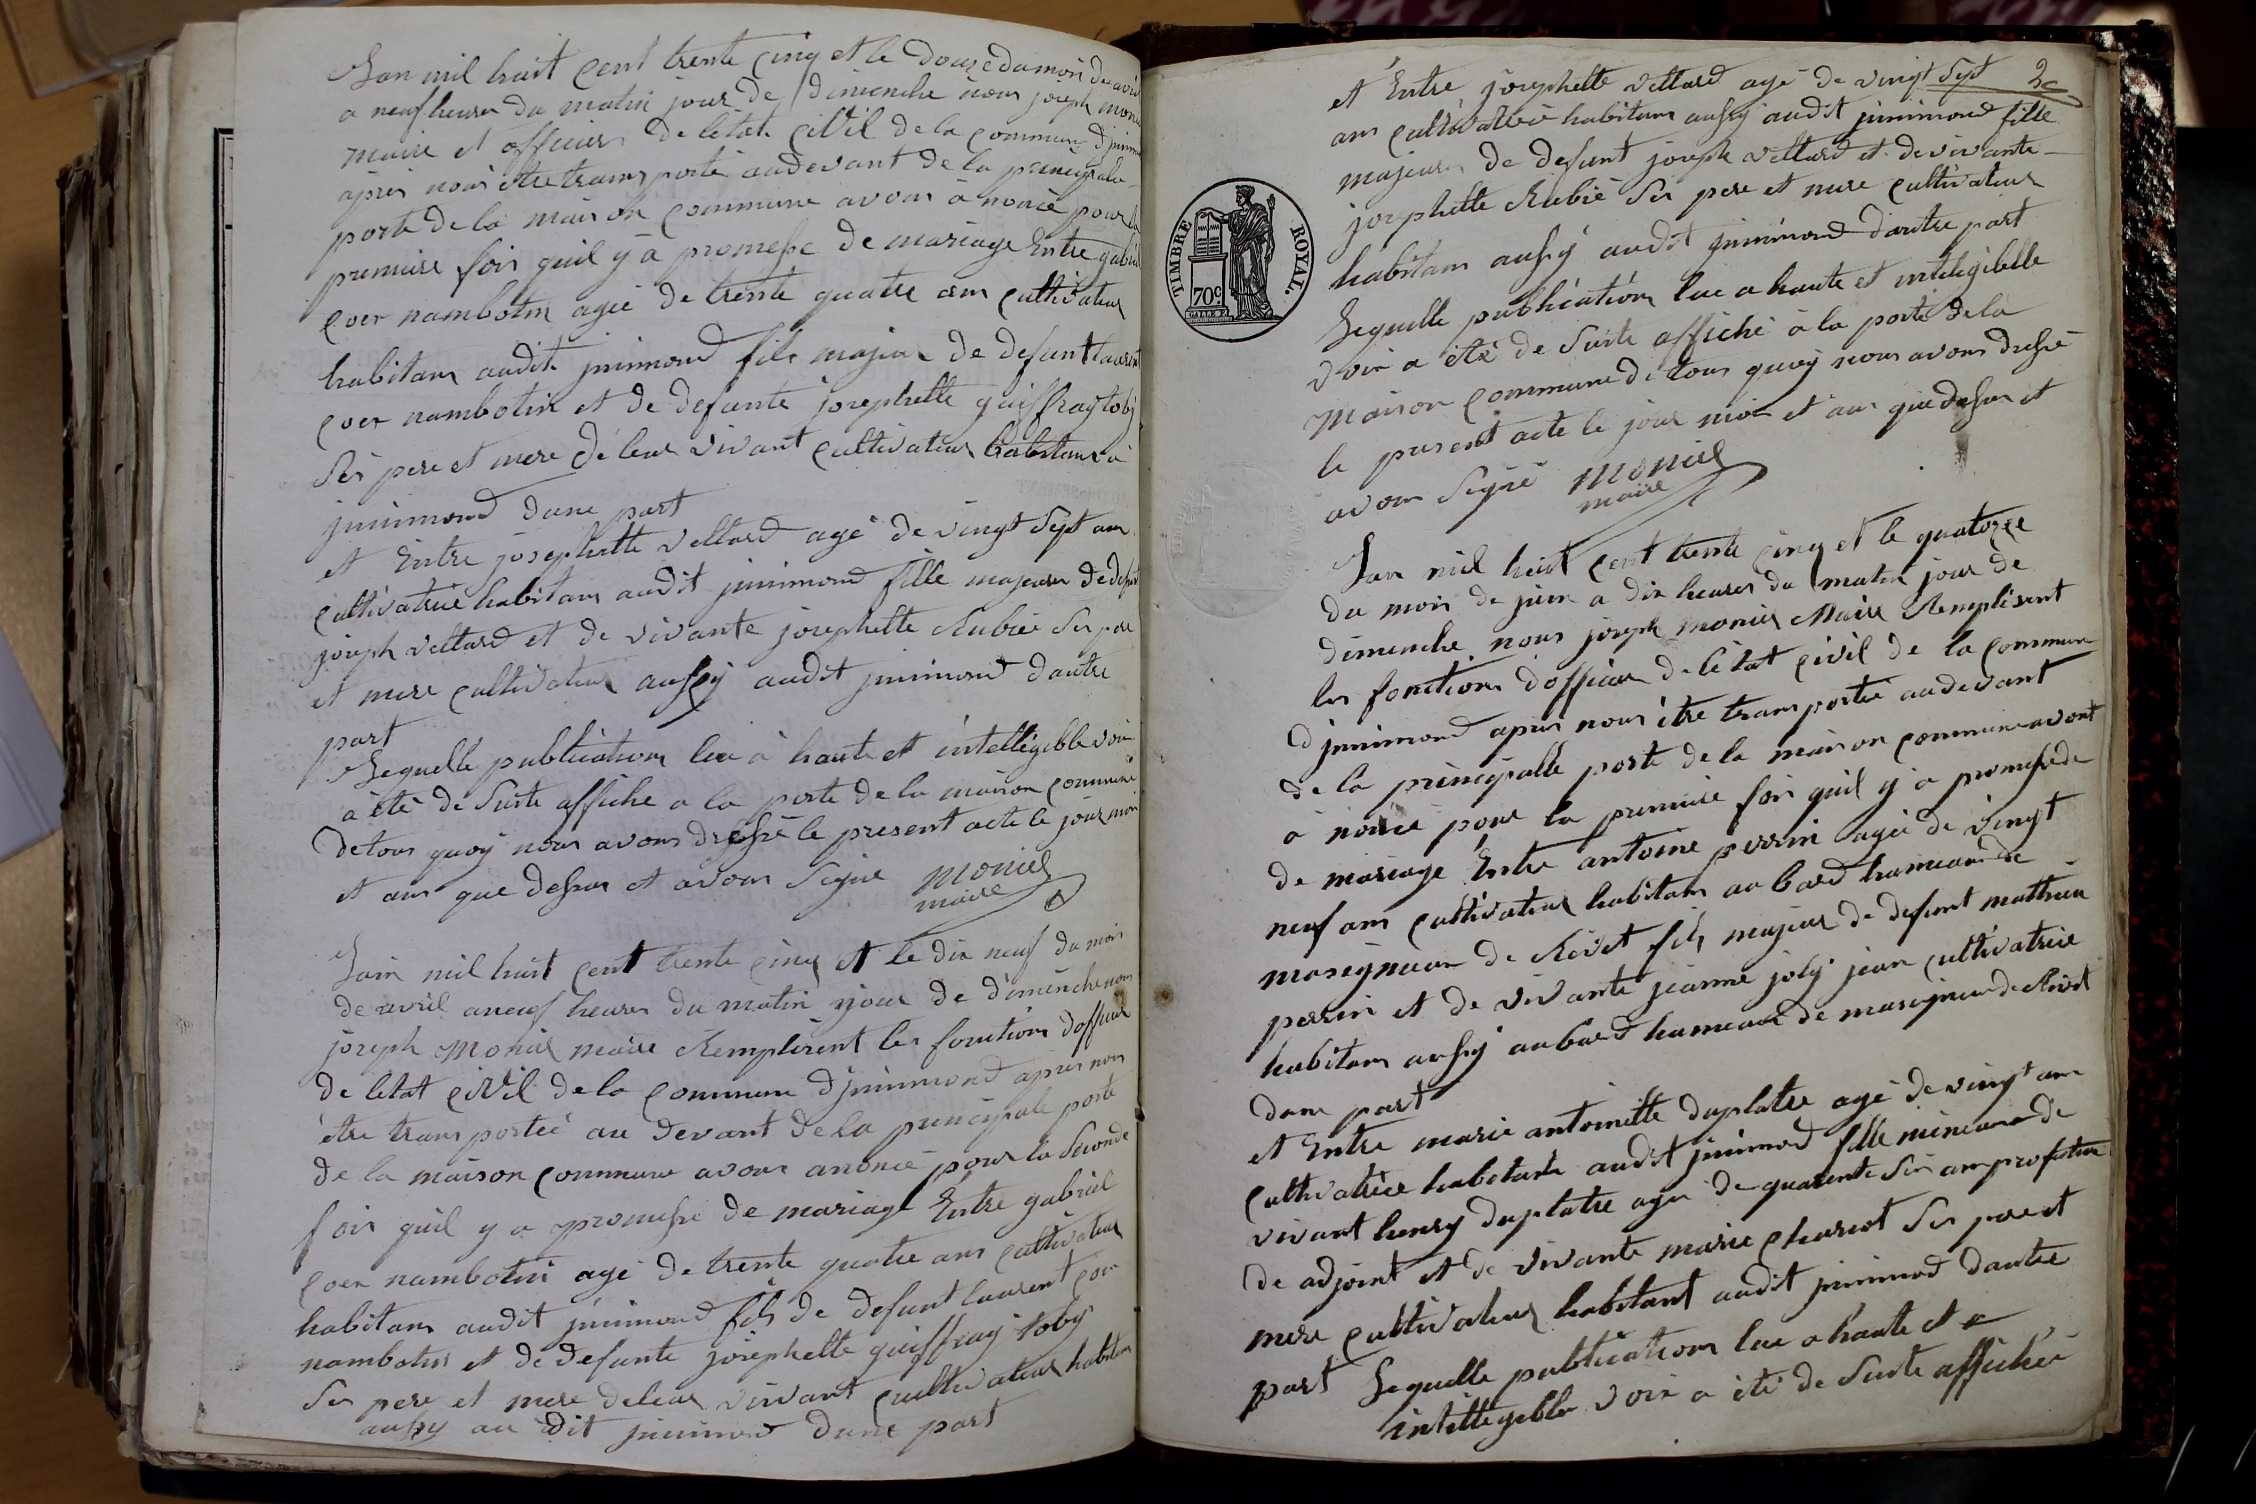 Lan mil huit cent trente cinq et le douze du mois de avril
a neuf heures du matin jour de dimenche nous joseph monier
maire et officier de létat civil de la commune djinimond
après nous être transporté audevant de la principale
porte de la maison commune avons anoncé pour la
premiere fois quil y a promesse de mariage Entre gabriel
coer nambotin agé de trente quatre ans cultivateur
habitans audit jnnimond fils majeur de defunt laurent
coer nambotin et de defunte josephette guiffray toby
Ses pere et mere de leur vivant cultivateur habitans a
jnnimond dune part
et Entre josephette vettard agé de vingt Sept ans
cultivatrice habitans audit jnnimond fille majeure de defunt
joseph vettard et de vivante josephette Rubié Ses pere
et mere cultivateur aussy audit jnnimond dautre
part
Lequelle publication lue à haute et intelligible voix
à été de Suite affiche a la porte de la maison commune
detous quoy nous avons dressé le present acte le jour mois
et ans que dessus et avons Signé monier
maire
Lan mil huit cent trente cinq et le dix neuf du mois
de avril aneuf heures du matin jour de dimenche nous
joseph Monier maire Remplisent les fonctions dofficier
de letat civil de la commune djnnimond apres nous
être transporteé au devant de la principale porte
de la maison commune avons anoncé pour la Seconde
fois quil y a promesse de mariage Entre gabriel
coer nambotin agé de trente quatre ans cultivateur
habitans audit jnnimond fils de defunt laurent coer
nambotin et de defunte josephette guiffray toby
Ses pere et mere deleur vivant cultivateur habitans
aussy au dit jnnimond dune part
et Entre josephette vettard agé de vingt Sept
ans cultivatrice habitans aussy audit jnnimond fille
majeure de defunt joseph vettard et de vivante
josephette Rubié Ses pere et mere cultivateur
habitans aussy audit jnnimond dautre part
Lequelle publication lue a haute et inteligibelle
voix a été de Suite affiché à la porte de la
Maison commune de tous quoy nous avons dressé
le present acte le jour mois et ans que dessus et
avons Signé Monier
maire
TIMBRE ROYAL.
70c.
Lan mil huit cent trente cinq et le quatorze
du mois de juin a dix heures du matin jour de
dimenche nous joseph monier Maire Remplisent
les fonctions dofficier de létat civil de la commune
djnnimond apres nous être transportée audevant
de la principalle porte de la maison commune avons
a noncé pour la premiere fois quil y a promesse de
de mariage Entre antoine perrin agée de vingt
neuf ans cultivateur habitans au bard hameau de
masigneux de Rivet fils majeur de defunt mathieu
perrin et de vivante jeanne joly jean cultivatrice
habitans aussy aubard hameau de masigneux de Rivet
dune part
et Entre marie antoinette duplatre agé de vingt ans
cultivatrice habitans audit jnnimond fille mineure de
vivant henry duplatre agée de quarente Six ans profession
de adjoint et de vivante marie chariot Ses pere et
mere cultivateur habitant audit jnnimond dautre
part Lequelle publication lue a haute et
intelligeble voix a été de Suite affichée